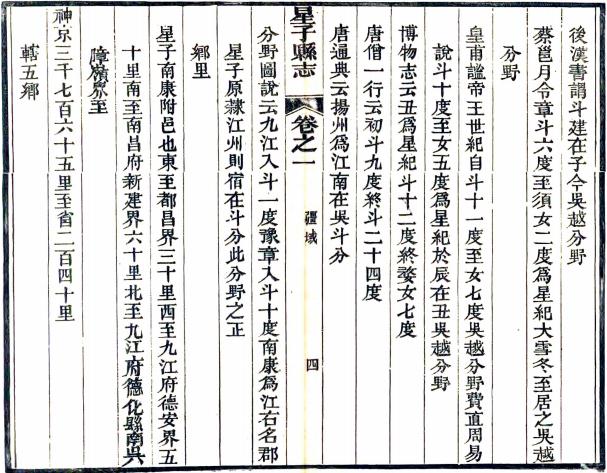 後漢書謂斗建在子今吳越分野
蔡邕月令章斗六度至須女二度爲星紀大雪冬至居之吳越
分野
皇甫謐帝王世紀自斗十一度至女七度吳越分野費直周易
說斗十度至女五度爲星紀於辰在丑吳越分野
博物志云丑爲星紀斗十二度終婺女七度
唐僧一行云初斗九度終斗二十四度
唐通典云揚州爲江南在吳斗分
星子縣志
卷之一
疆域
四
分野圖說云九江入斗一度豫章入斗十度南康爲江右名郡
星子原隷江州則宿在斗分此分野之正
鄉里
星子南康附邑也東至都昌界三十里西至九江府德安界五
十里南至南昌府新建界六十里北至九江府德化縣南吳
障嶺界至
神京三千七百六十五里至省二百四十里
轄五鄉